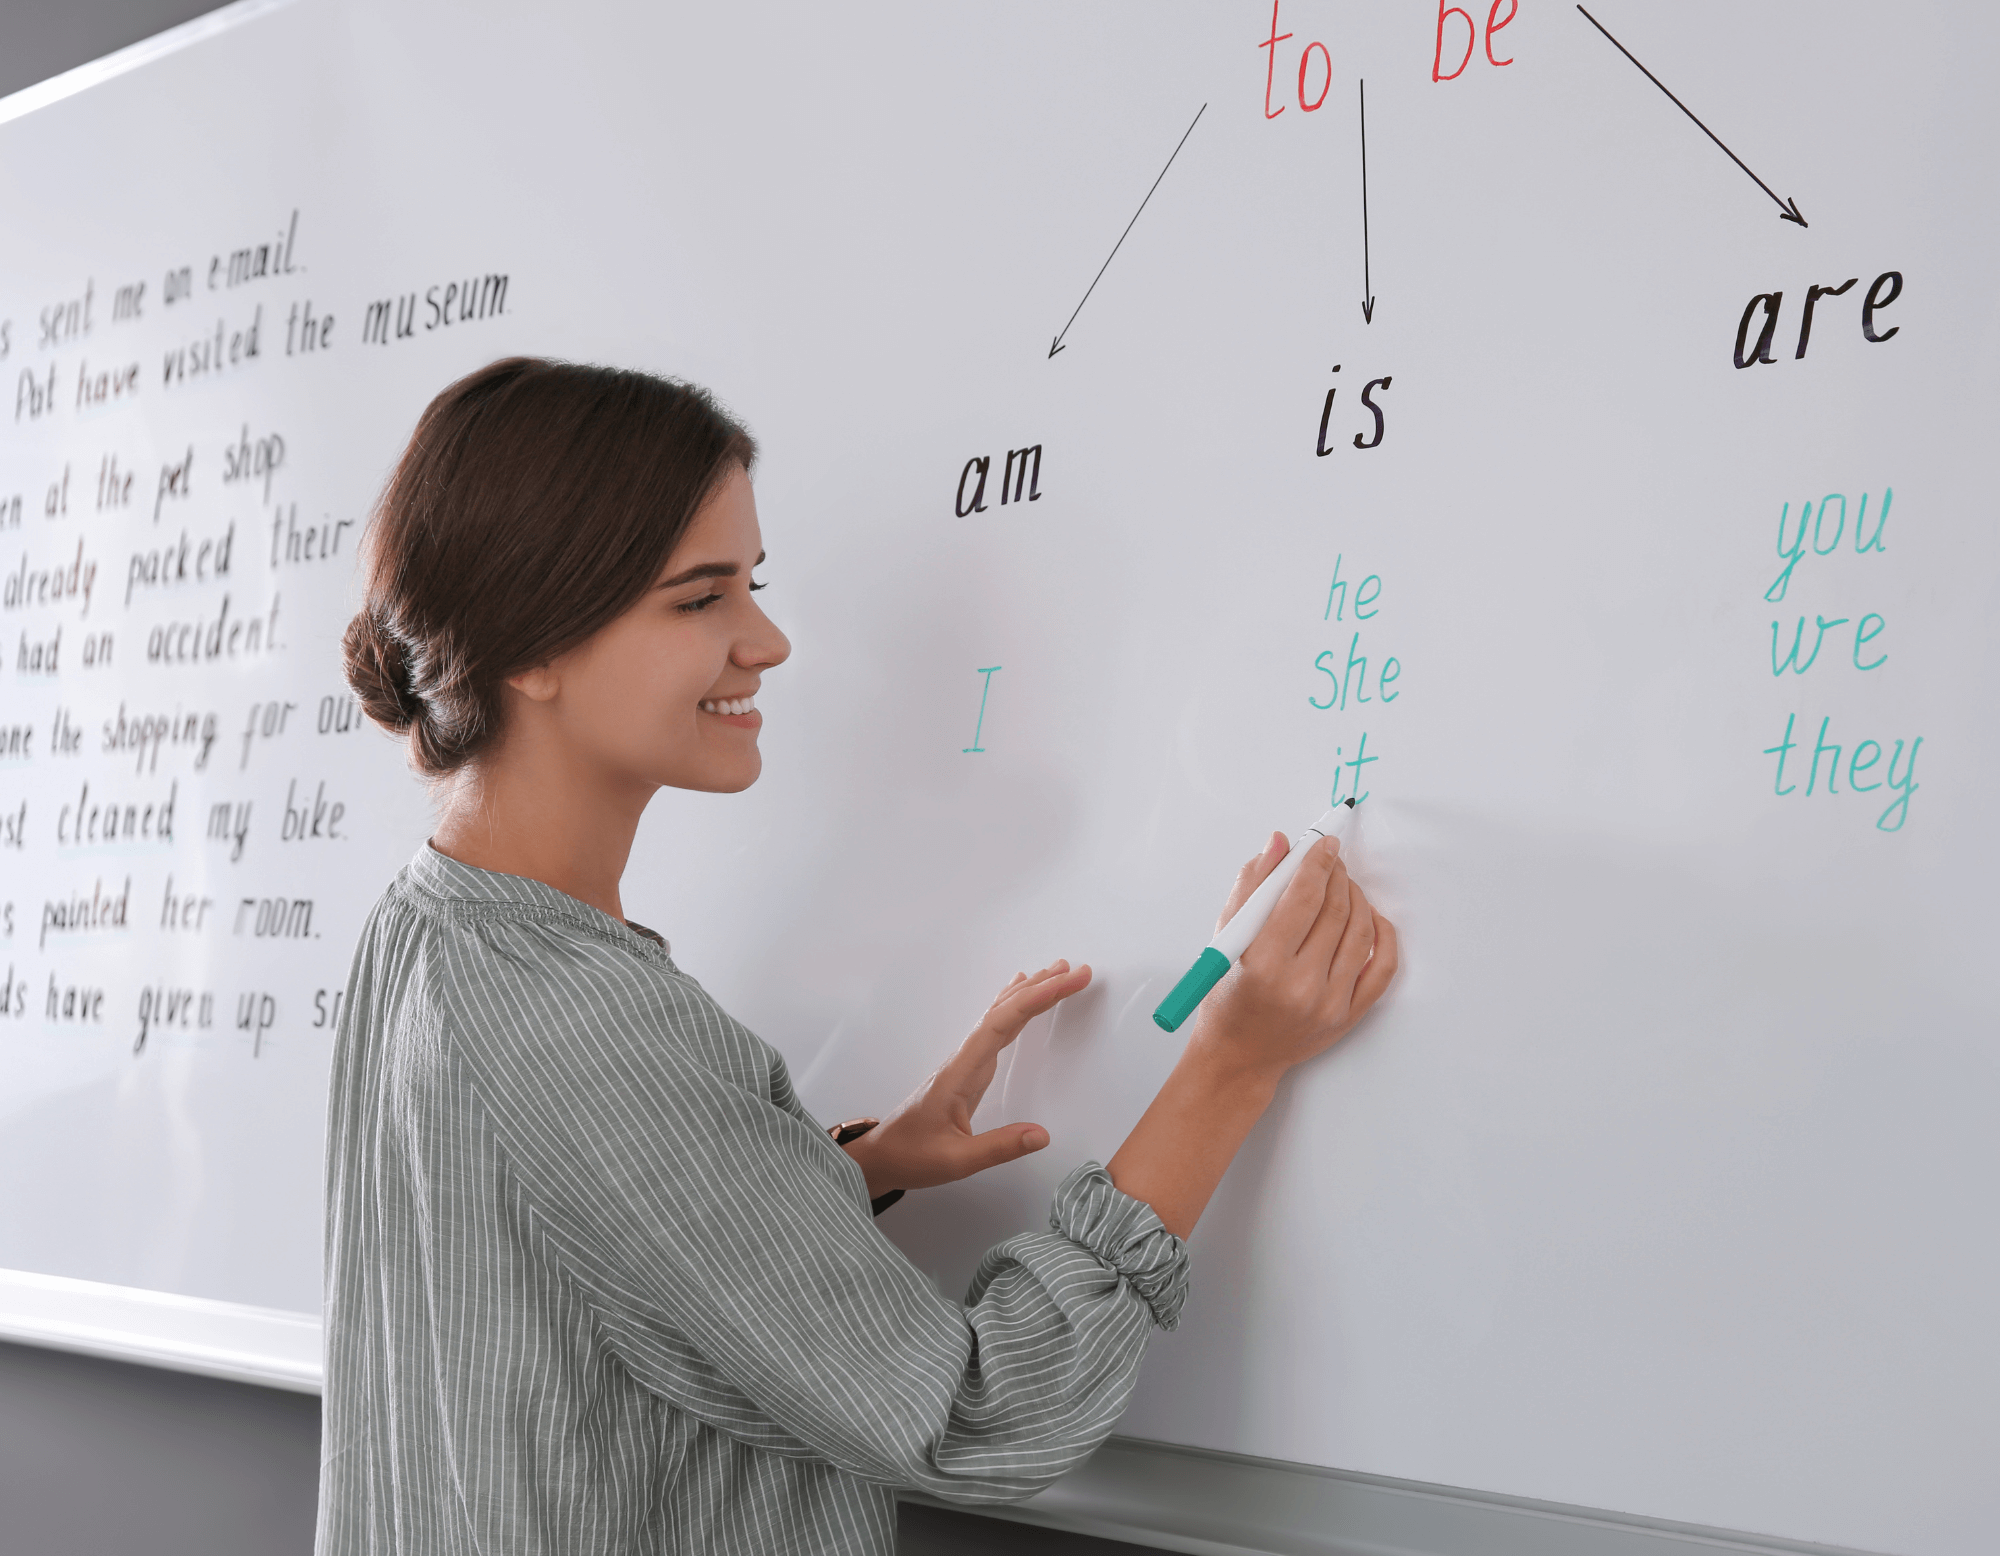 sent me an e-mail.
Pat have visited the museum.
at the pet shop
already packed their
had an accident.
the shopping for our
cleaned my bike.
painted her room.
have given up
to be
am is are
I
he
she
it
you
we
they